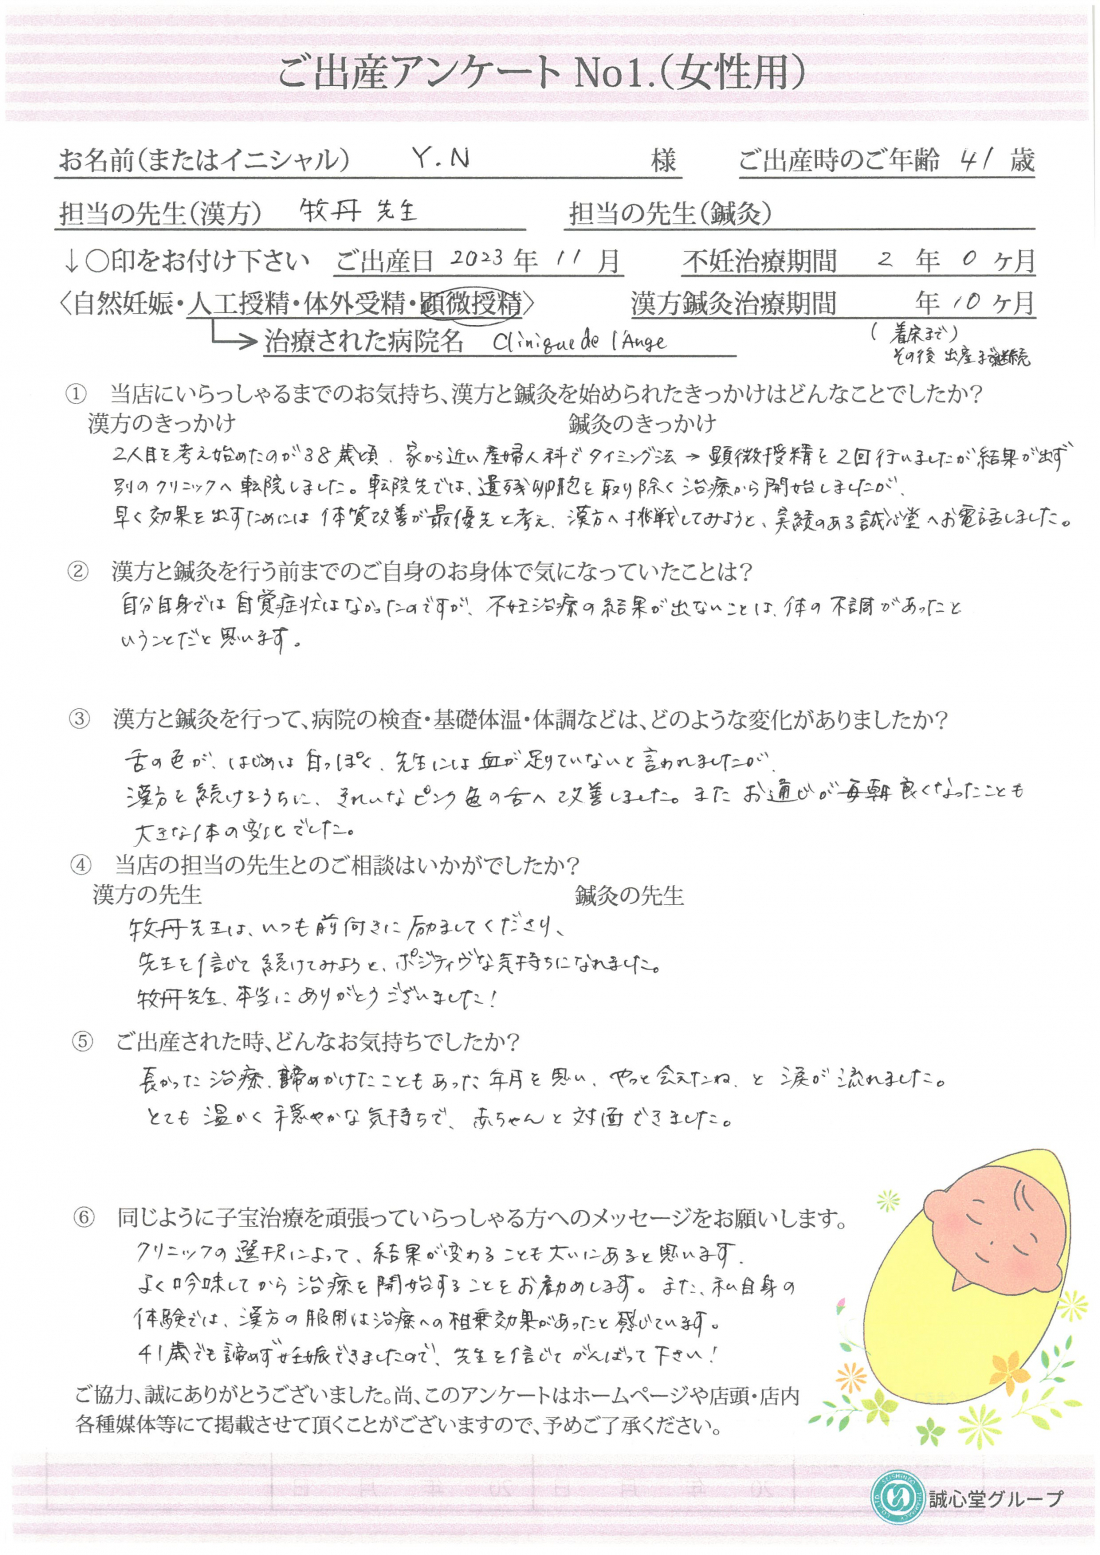 ご出産アンケート No1.(女性用)
お名前(またはイニシャル) Y.N 様 ご出産時のご年齢 41 歳
担当の先生(漢方) 牧丹先生 担当の先生(鍼灸)
↓○印をお付け下さい ご出産日 2023年 11月 不妊治療期間 2年 0ヶ月
〈自然妊娠・人工授精・体外受精・顕微授精〉 漢方鍼灸治療期間 年10ヶ月
治療された病院名 Clinique de l'Ange (着床まで)
その後 出産まで継続
① 当店にいらっしゃるまでのお気持ち、漢方と鍼灸を始められたきっかけはどんなことでしたか?
漢方のきっかけ 鍼灸のきっかけ
2人目を考え始めたのが38歳頃、家から近い産婦人科でタイミング法→顕微授精を2回行いましたが結果が出ず
別のクリニックへ転院しました。転院先では、遺残卵胞を取り除く治療から開始しましたが、
早く効果を出すためには体質改善が最優先と考え、漢方へ挑戦してみようと、実績のある誠心堂へお電話しました。
② 漢方と鍼灸を行う前までのご自身のお身体で気になっていたことは?
自分自身では自覚症状はなかったのですが、不妊治療の結果が出ないことは、体の不調があったと
いうことだと思います。
③ 漢方と鍼灸を行って、病院の検査・基礎体温・体調などは、どのような変化がありましたか?
舌の色が、はじめは白っぽく、先生には血が足りていないと言われましたが、
漢方を続けるうちに、きれいなピンク色の舌へ改善しました。また お通じが毎朝良くなったことも
大きな体の変化でした。
④ 当店の担当の先生とのご相談はいかがでしたか?
漢方の先生 鍼灸の先生
牧丹先生は、いつも前向きに励ましてくださり、
先生を信じて続けてみようと、ポジティヴな気持ちになれました。
牧丹先生、本当にありがとうございました!
⑤ ご出産された時、どんなお気持ちでしたか?
長かった治療、諦めかけたこともあった年月を思い、やっと会えたね、と涙が流れました。
とても温かく穏やかな気持ちで、赤ちゃんと対面できました。
⑥ 同じように子宝治療を頑張っていらっしゃる方へのメッセージをお願いします。
クリニックの選択によって、結果が変わることも大いにあると思います。
よく吟味してから治療を開始することをお勧めします。また、私自身の
体験では、漢方の服用は治療への相乗効果があったと感じています。
41歳でも諦めず妊娠できましたので、先生を信じてがんばって下さい!
ご協力、誠にありがとうございました。尚、このアンケートはホームページや店頭・店内
各種媒体等にて掲載させて頂くことがございますので、予めご了承ください。
誠心堂グループ